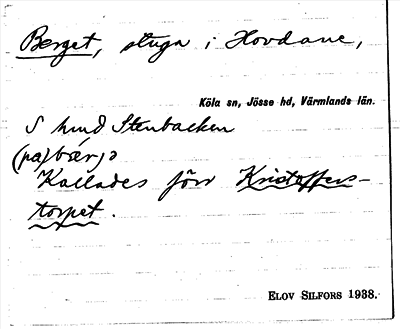 Berget, stuga i Hovdane,
Köla sn, Jösse hd, Värmlands län.
S hmd Stenbacken
(på) bærjə
Kallades förr Kristoffers-
torpet.
ELOV SILFORS 1938.